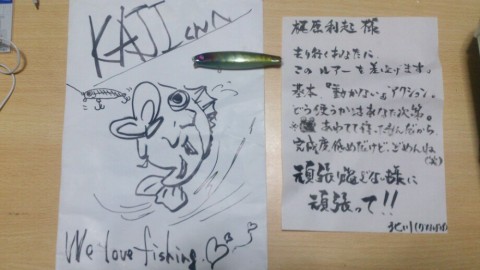 KAJI
We love fishing
梶原利起 様
走り行くあなたに
このルアーを差し上げます。
基本 "動かない" アクション。
どう使うかはあなた次第。
あわてて作ったんだから
完成度低めだけど、ごめんね
(笑)
頑張り過ぎない様に
頑張って!!
北川